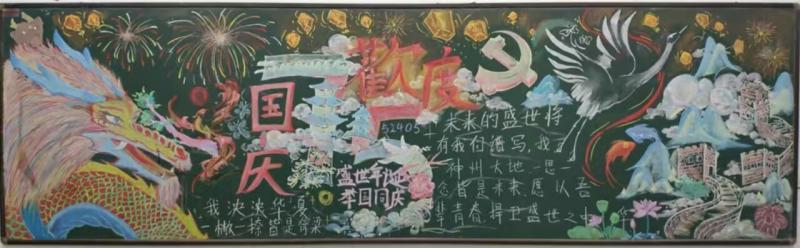 欢度
国庆
52405
盛世华诞
举国同庆
我泱泱华夏
一撇一捺皆是脊梁
未来的盛世将
有我们谱写,我
神州大地一思一
念皆是未来,愿以吾
辈青春捍卫盛世之中华